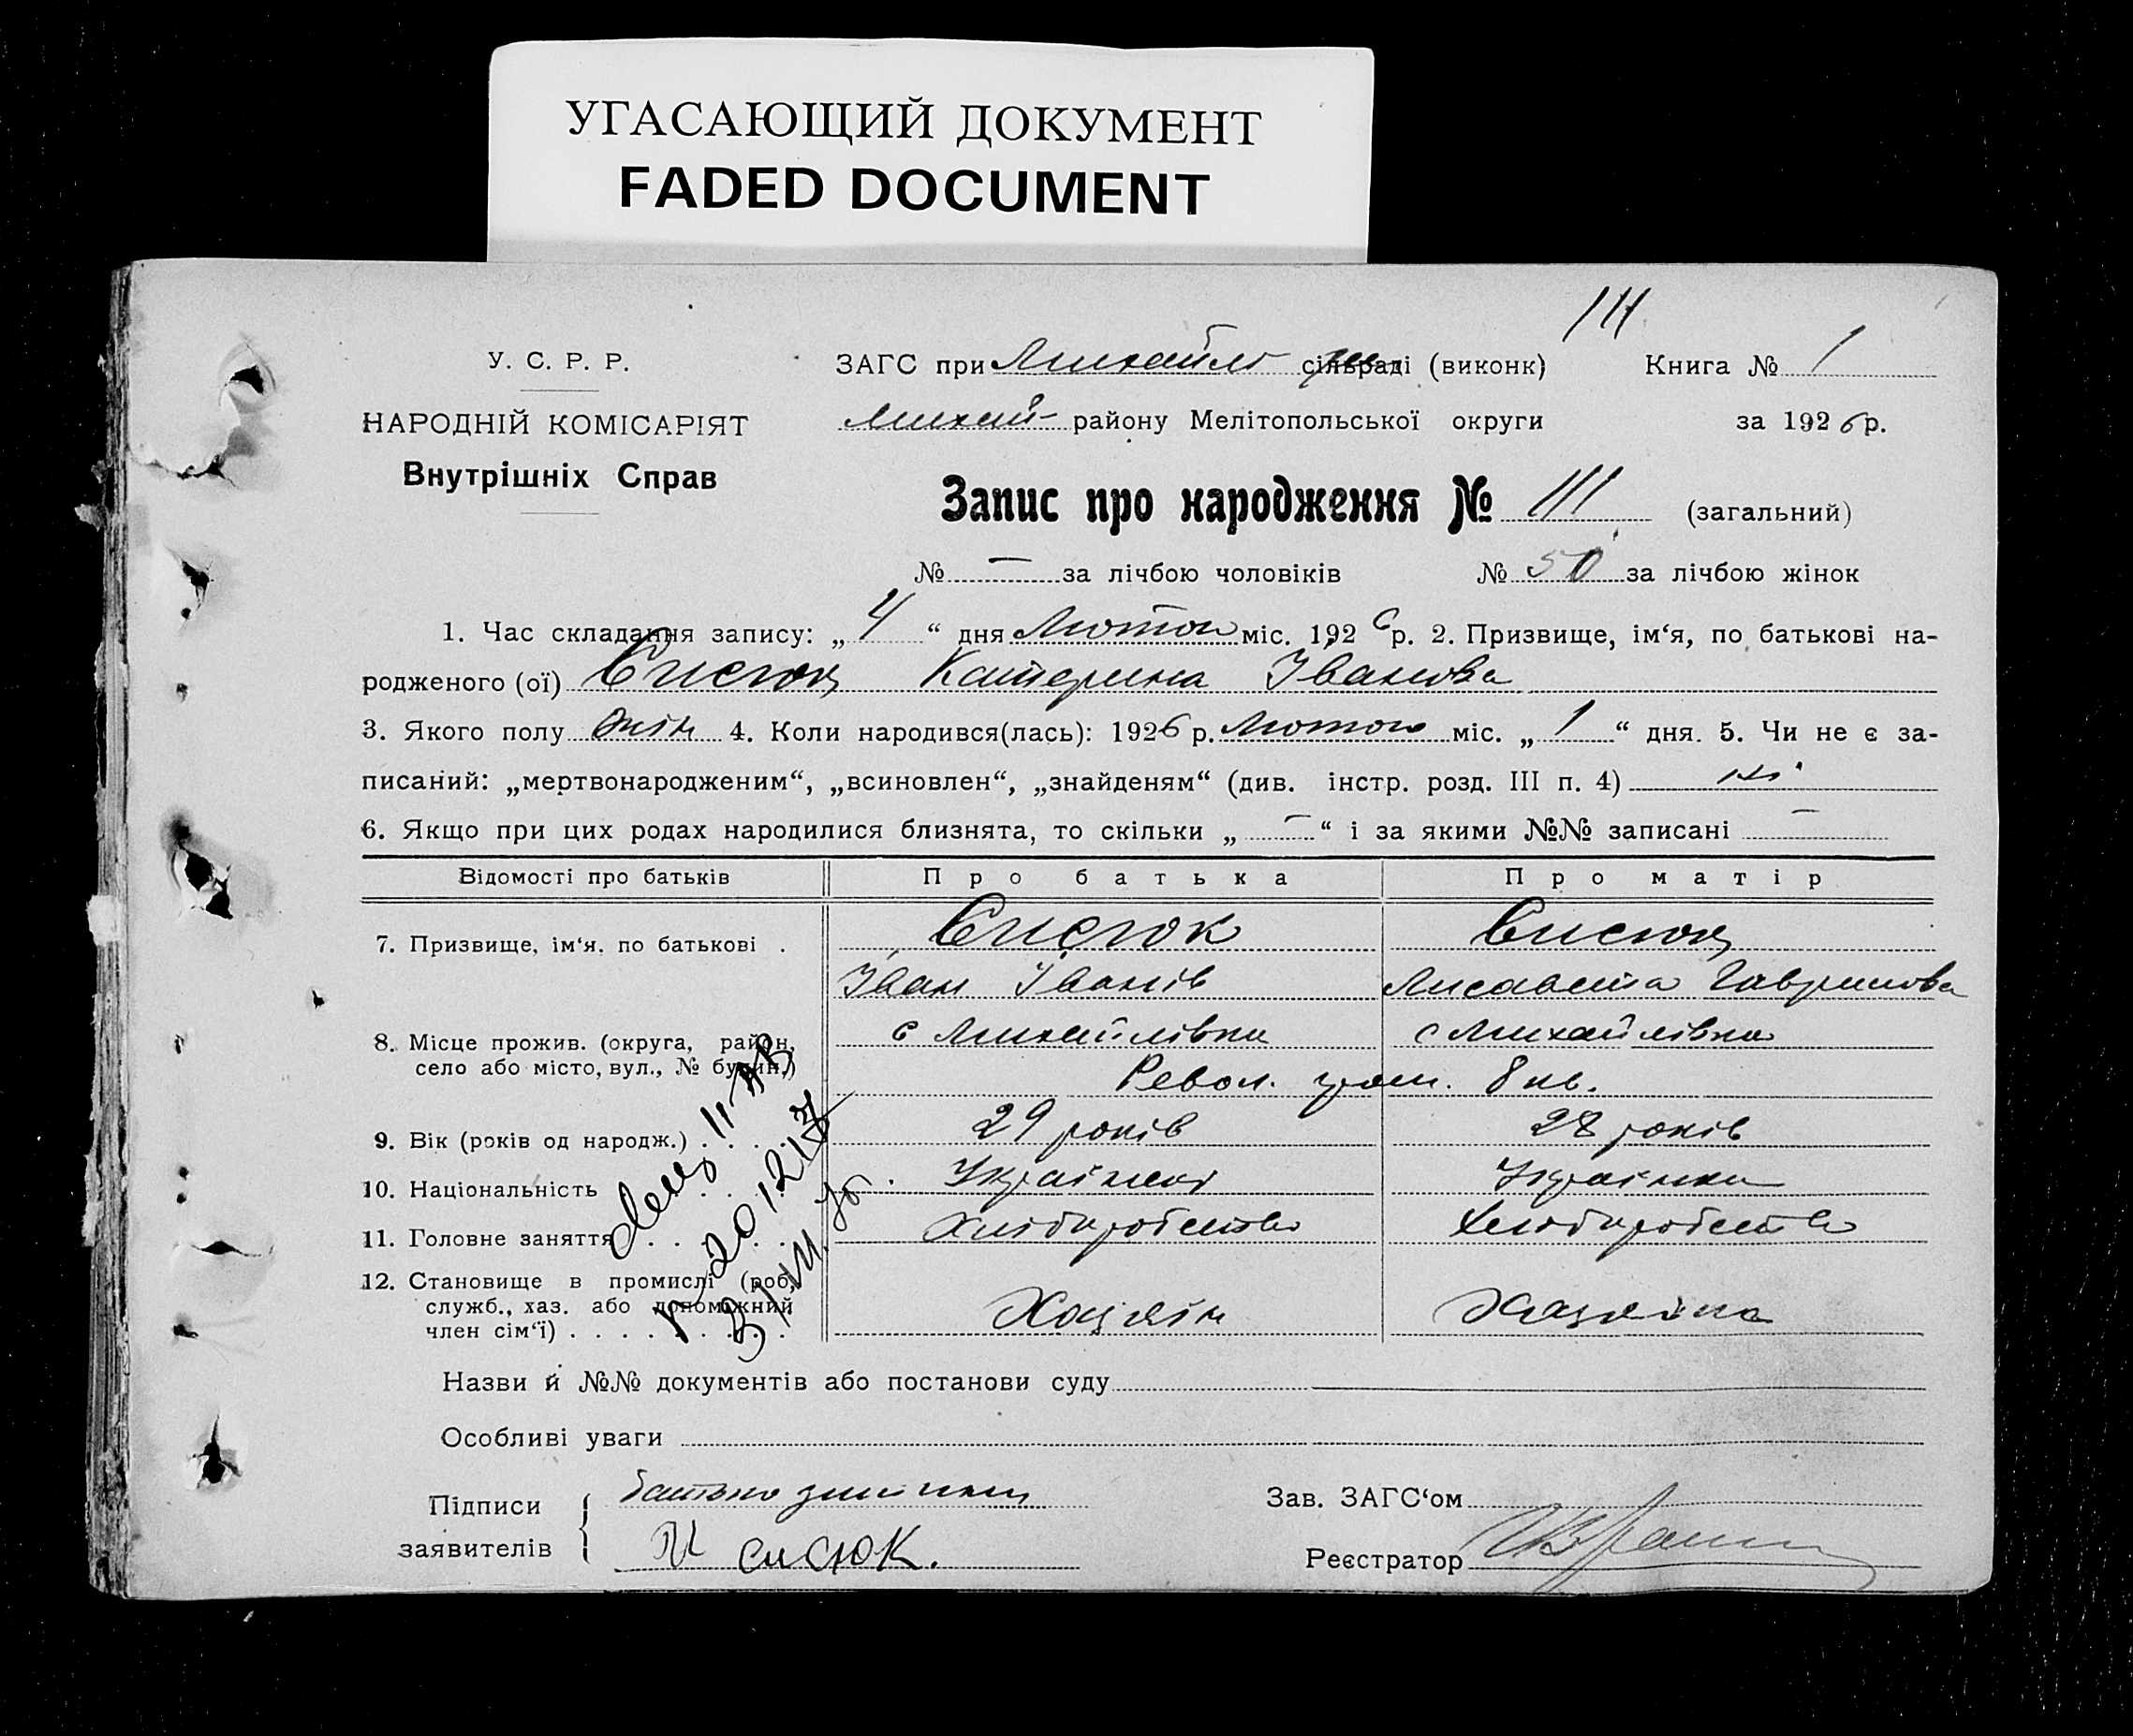 УГАСАЮЩИЙ ДОКУМЕНТ
FADED DOCUMENT
111
У. С. Р. Р.
ЗАГС при Михайло сільраді (виконк)
Книга № 1
НАРОДНІЙ КОМІСАРІЯТ
Михай- району Мелітопольської округи
за 1926 р.
Внутрішніх Справ
Запис про народження № 111 (загальний)
№ — за лічбою чоловіків № 50 за лічбою жінок
1. Час складання запису: „ 4 “ дня Лютого міс. 1926 р. 2. Призвище, ім‘я, по батькові на-
родженого (ої) Сисюк Катерина Іванова
3. Якого полу жін 4. Коли народився(лась): 1926 р. Лютого міс. „ 1 “ дня. 5. Чи не є за-
писаний: „мертвонародженим“, „всиновлен“, „знайденям“ (див. інстр. розд. III п. 4) ні
6. Якщо при цих родах народилися близнята, то скільки „ — “ і за якими №№ записані —
Відомості про батьків Про батька Про матір
7. Призвище, ім‘я. по батькові . Сисюк Сисюк
Іван Іванів Лисавета Гаврилова
8. Місце прожив. (округа, район, с Михайлівка с Михайлівка
село або місто, вул., № будин.) Револ. 8 кв.
9. Вік (років од народж.) . . . . 29 років 28 років
10. Національність . . . . Українец Українка
11. Головне заняття . . . . Хліборобство Хліборобство
12. Становище в промислі (роб,
служб., хаз. або допоміжний Хазяїн Хазяйка
член сім‘ї) . . . . . . . . .
11-АВ
201217
Назви й №№ документів або постанови суду
Особливі уваги
Підписи
батько
Зав. ЗАГС‘ом
заявителів
И сисюк.
Реєстратор